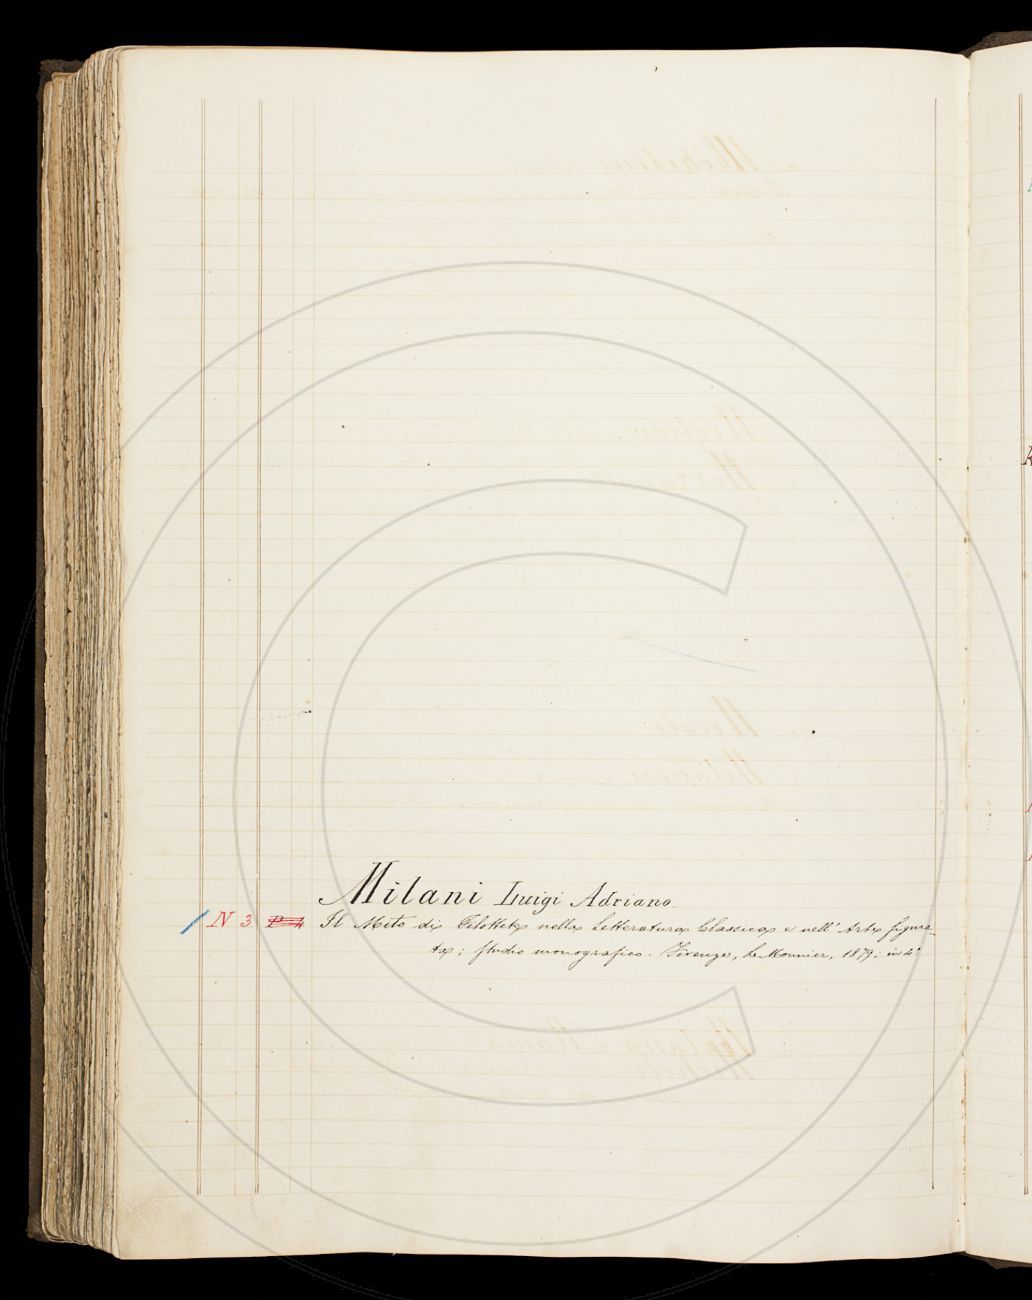 Milani Luigi Adriano.
N 3 Il Mito di Filottete nella Letteratura Classica e nell' Arte figura-
ta; studio monografico. Firenze, Le Monnier, 1879; in 4°